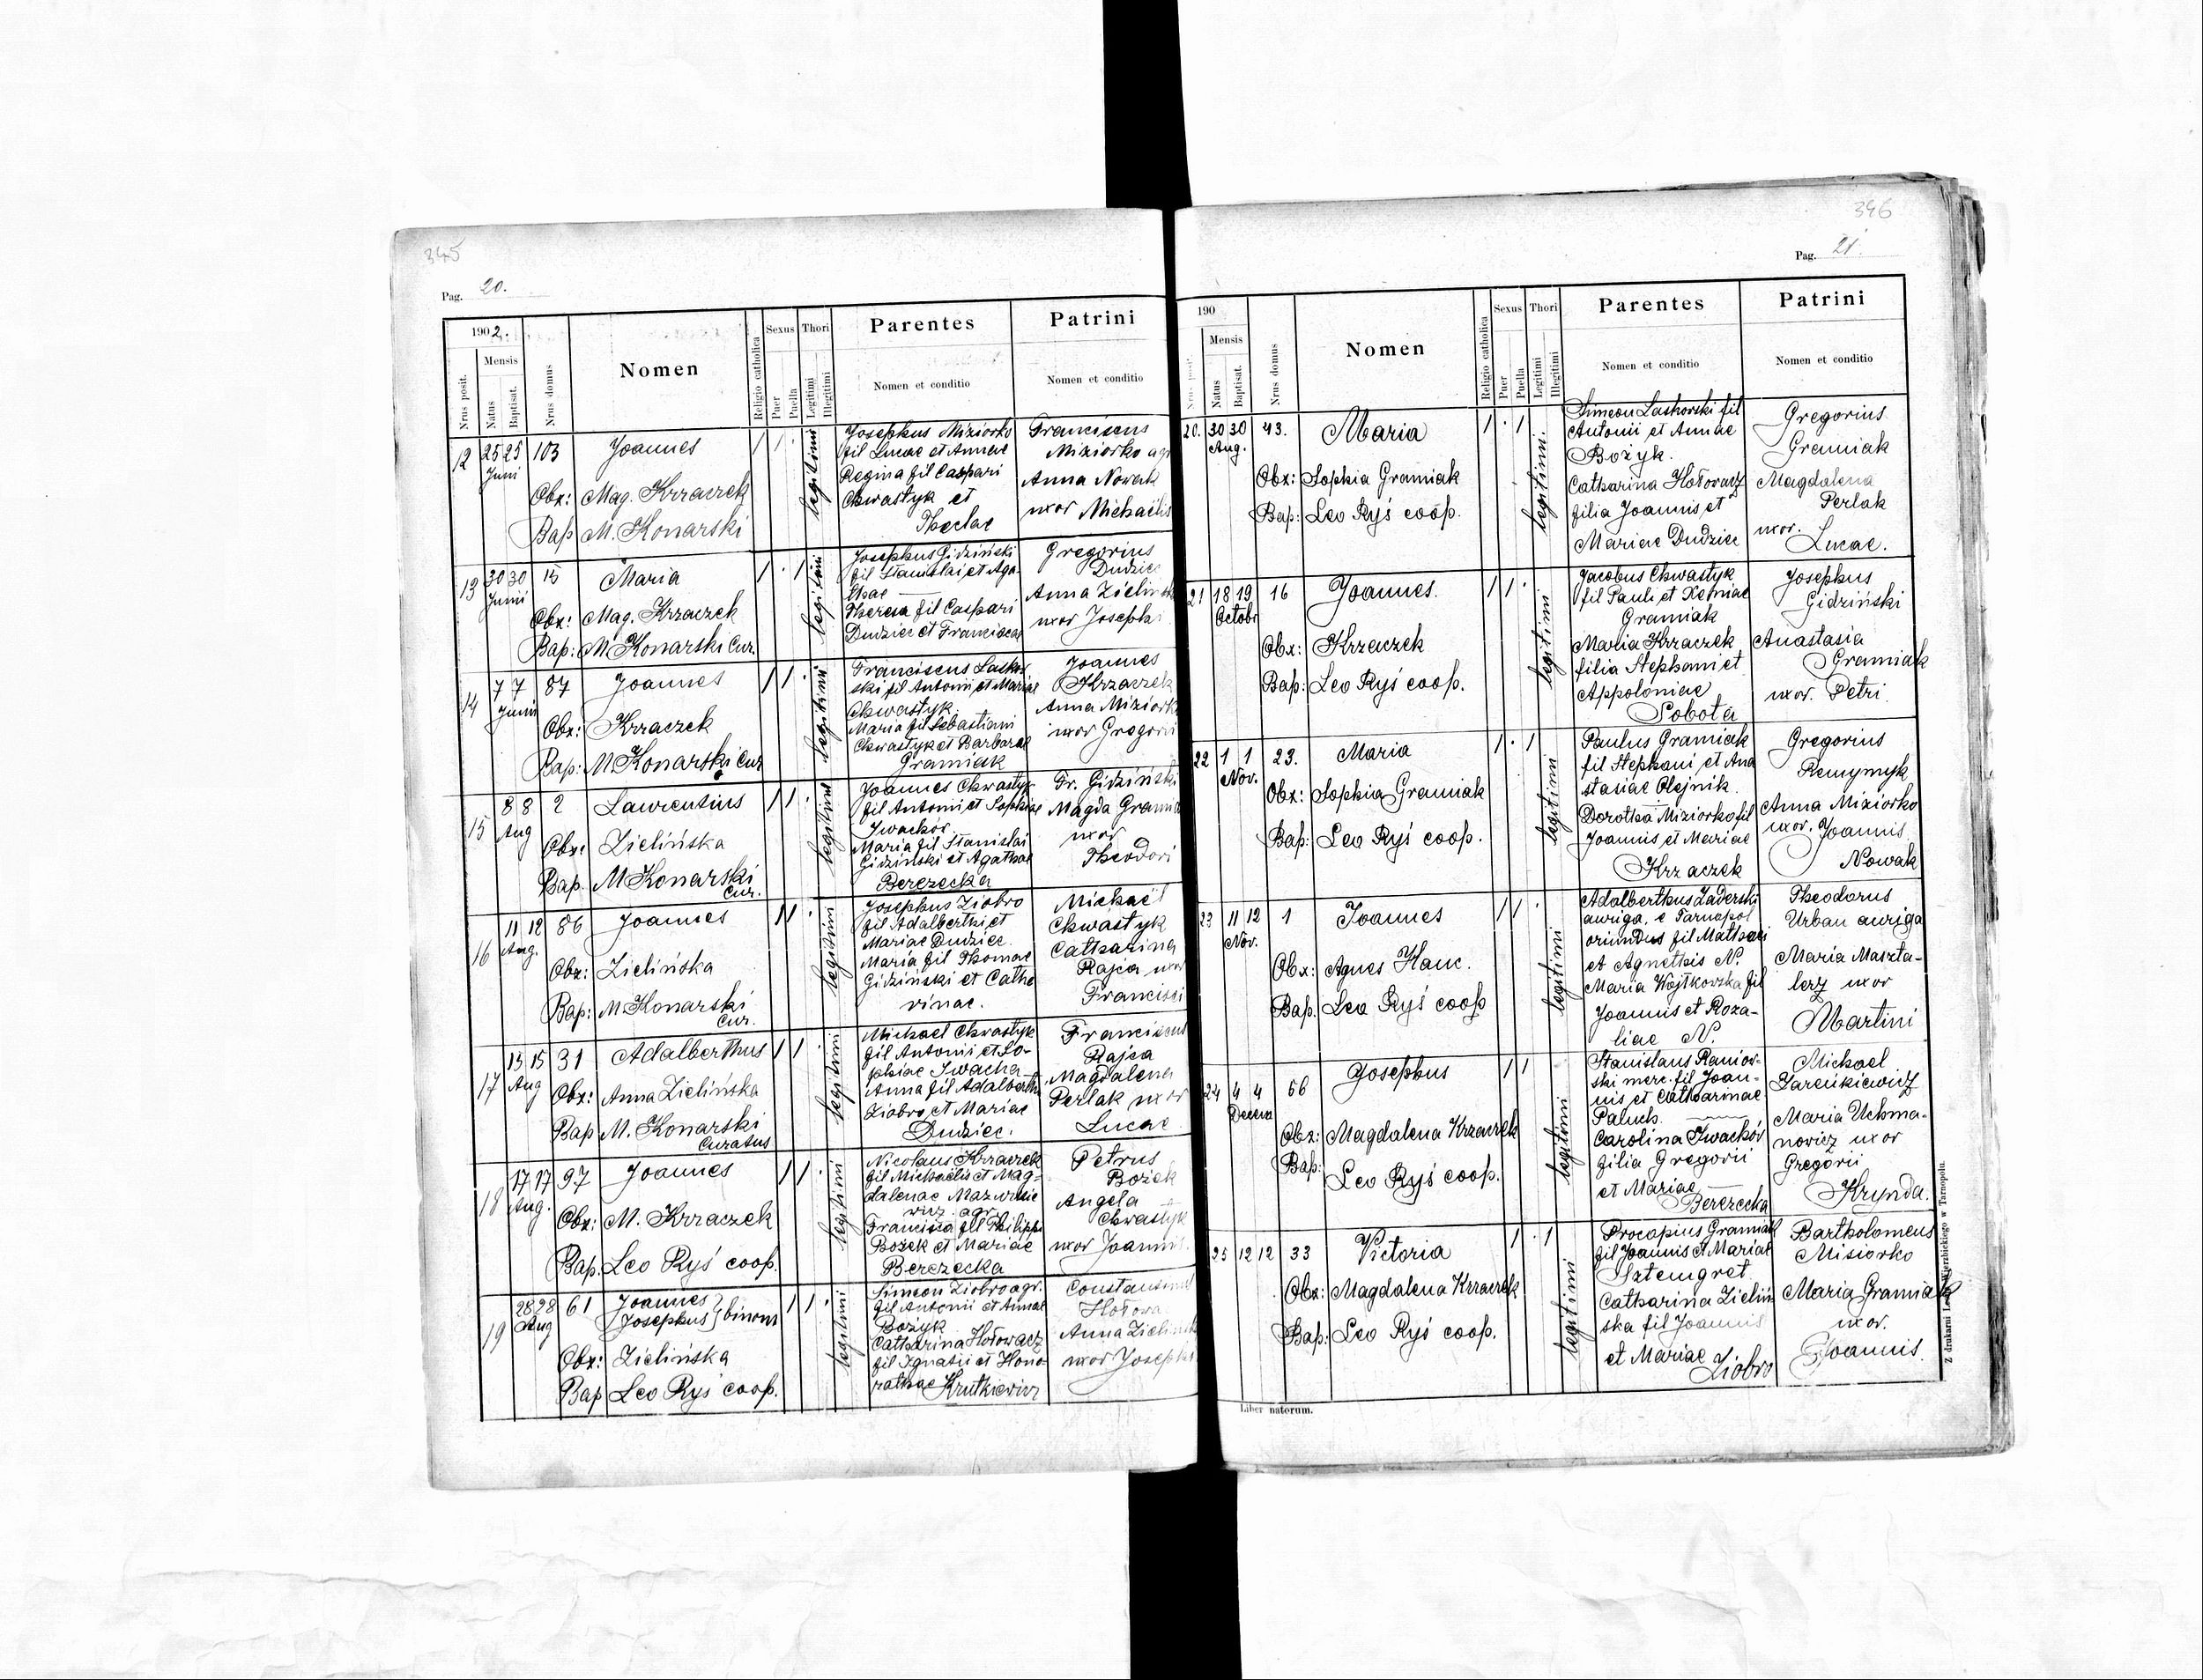 345
Pag. 20.
1902.
Nrus posit.
Mensis
Natus
Baptisat.
Nrus domus
Nomen
Religio catholica
Sexus
Puer
Puella
Thori
Legitimi
Illegitimi
Parentes
Nomen et conditio
Patrini
Nomen et conditio
12 25 25 103 Joannes
Juni
Obx: Mag. Krzaczek
Bap M. Konarski
legitimi
Josephus Miziorko
fil Lucae et Annae
Regina fil Caspari
Chwastyk et
Theclae
Franciscus
Miziorko agr
Anna Nowak
uxor Michaëlis
13 30 30 15 Maria
Junii
Obx: Mag. Krzaczek
Bap: M Konarski Cur.
legitimi
Josephus Gidziński
fil Stanislai et Aga-
thae
Theresa fil Caspari
Dudziec et Franciscae
Gregorius
Dudziec
Anna Zielińska
uxor Josephi
14 7 7 87 Joannes
Junii
Obx: Krzaczek
Bap: M Konarski Cur
legitimi
Franciscus Laskor
ski fil Antonii et Mariae
Chwastyk
Maria fil Sebastiani
Chwastyk et Barbarae
Gramiak
Joannes
Krzaczek
Anna Miziorko
uxor Gregorii
15 8 8 2 Laurentius
Aug
Obx: Zielińska
Bap. M Konarski
Cur.
legitimi
Joannes Chwastyk
fil Antonii et Sophiae
Iwachór
Maria fil Stanislai
Gidziński et Agathae
Berezecka
Fr. Gidziński
Magda Gramia
uxor
Theodori
16 11 12 86 Joannes
Aug.
Obx: Zielińska
Bap: M. Konarski
Cur.
legitimi
Josephus Ziobro
fil Adalberthi et
Mariae Dudziec.
Maria fil Thomae
Gidziński et Catha
rinae.
Michaël
Chwastyk
Catharina
Rajca uxor
Francisci
17 13 15 31 Adalberthus
Aug
Obx: Anna Zielińska
Bap M. Konarski
Curatus
legitimi
Michael Chwastyk
fil Antonii et So-
phiae Iwacha
Anna fil Adalberthi
Ziobro et Mariae
Dudziec.
Franciscus
Rajca
Magdalena
Perlak uxor
Lucae
18 17 17 97 Joannes
Aug.
Obx: M. Krzaczek
Bap. Leo Ryś coop.
legitimi
Nicolaus Krzaczek
fil Michaëlis et Mag-
dalenae Mazurkie
wicz agr.
Francisca fil Philippi
Bożek et Mariae
Berezecka
Petrus
Bożek
Angela
Chwastyk
uxor Joannis
19 28 28 61 Joannes
Aug Josephus } binom
Obx: Zielińska
Bap Leo Ryś coop.
legitimi
Simeon Ziobro agr.
fil Antonii et Annae
Bożyk
Catharina Hołowacz
fil Ignatii et Hono
rathae Krutkiewicz
Constantinus
Hołowa
Anna Zielińska
uxor Josephi
346
Pag. 21.
190
Mensis
Natus
Baptisat.
Nrus domus
Nomen
Religio catholica
Sexus
Puer
Puella
Thori
Legitimi
Illegitimi
Parentes
Nomen et conditio
Patrini
Nomen et conditio
20. 30 30 43. Maria
Aug.
Obx: Sophia Gramiak
Bap: Leo Ryś coop.
legitimi.
Simeon Laskorski fil
Antonii et Annae
Bożyk.
Catharina Hołowacz
filia Joannis et
Mariae Dudziec
Gregorius
Gramiak
Magdalena
Perlak
uxor.
Lucae.
21 18 19 16 Joannes.
Octobr
Obx: Krzaczek
Bap: Leo Ryś coop.
legitimi
Jacobus Chwastyk
fil Pauli et Xeniae
Gramiak
Maria Krzaczek
filia Stephani et
Appoloniae
Sobota
Josephus
Gidziński
Anastasia
Gramiak
uxor. Petri
22 1 1 23. Maria
Nov.
Obx: Sophia Gramiak
Bap: Leo Ryś coop.
legitimi
Paulus Gramiak
fil Stephani et Ana
stasiae Olejnik.
Dorothea Miziorko fil
Joannis et Mariae
Krzaczek
Gregorius
Remymyk
Anna Miziorko
uxor. Joannis
Nowak
23 11 12 1 Joannes
Nov.
Obx: Agnes Hanc.
Bap. Leo Ryś coop
legitimi
Adalberthus Zaderski
auriga, e Tarnopol
oriundus fil Mathaei
et Agnethis N.
Maria Wojtkowska fil
Joannis et Roza-
liae N.
Theodorus
Urban auriga
Maria Maszta-
lerz uxor
Martini
24 4 4 56 Josephus
Decem
Obx: Magdalena Krzaczek
Bap: Leo Ryś coop.
legitimi
Stanislaus Ranior-
ski merc. fil Joan-
nis et Catharinae
Paluch.
Carolina Iwachór
filia Gregorii
et Mariae
Berezecka
Michael
Jareńkiewicz
Maria Uchma-
nowicz uxor
Gregorii
Hrynda.
25 12 12 33 Victoria
Obx: Magdalena Krzaczek
Bap: Leo Ryś coop.
legitimi
Procopius Gramiak
fil Joannis et Mariae
Sztemgret
Catharina Zieliń
ska fil Joannis
et Mariae
Ziobro
Bartholomeus
Misiorko
Maria Gramiak
uxor.
Joannis.
Liber natorum.